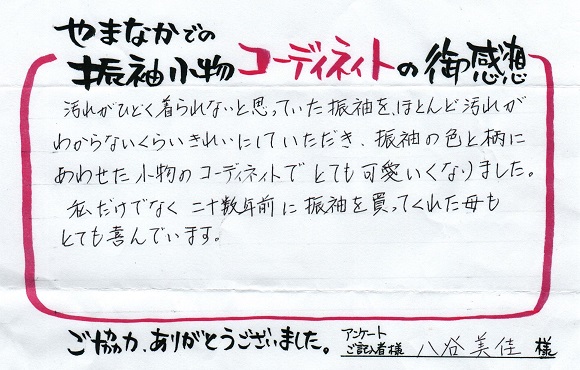 やまなかでの
振袖小物コーディネイトの御感想
汚れがひどく着られないと思っていた振袖を、ほとんど汚れが
わからないくらいきれいにしていただき、振袖の色と柄に
あわせた小物のコーディネイトでとても可愛いくなりました。
私だけでなく二十数年前に振袖を買ってくれた母も
とても喜んでいます。
ご協力、ありがとうございました。
アンケート
ご記入者様 八谷美佳 様